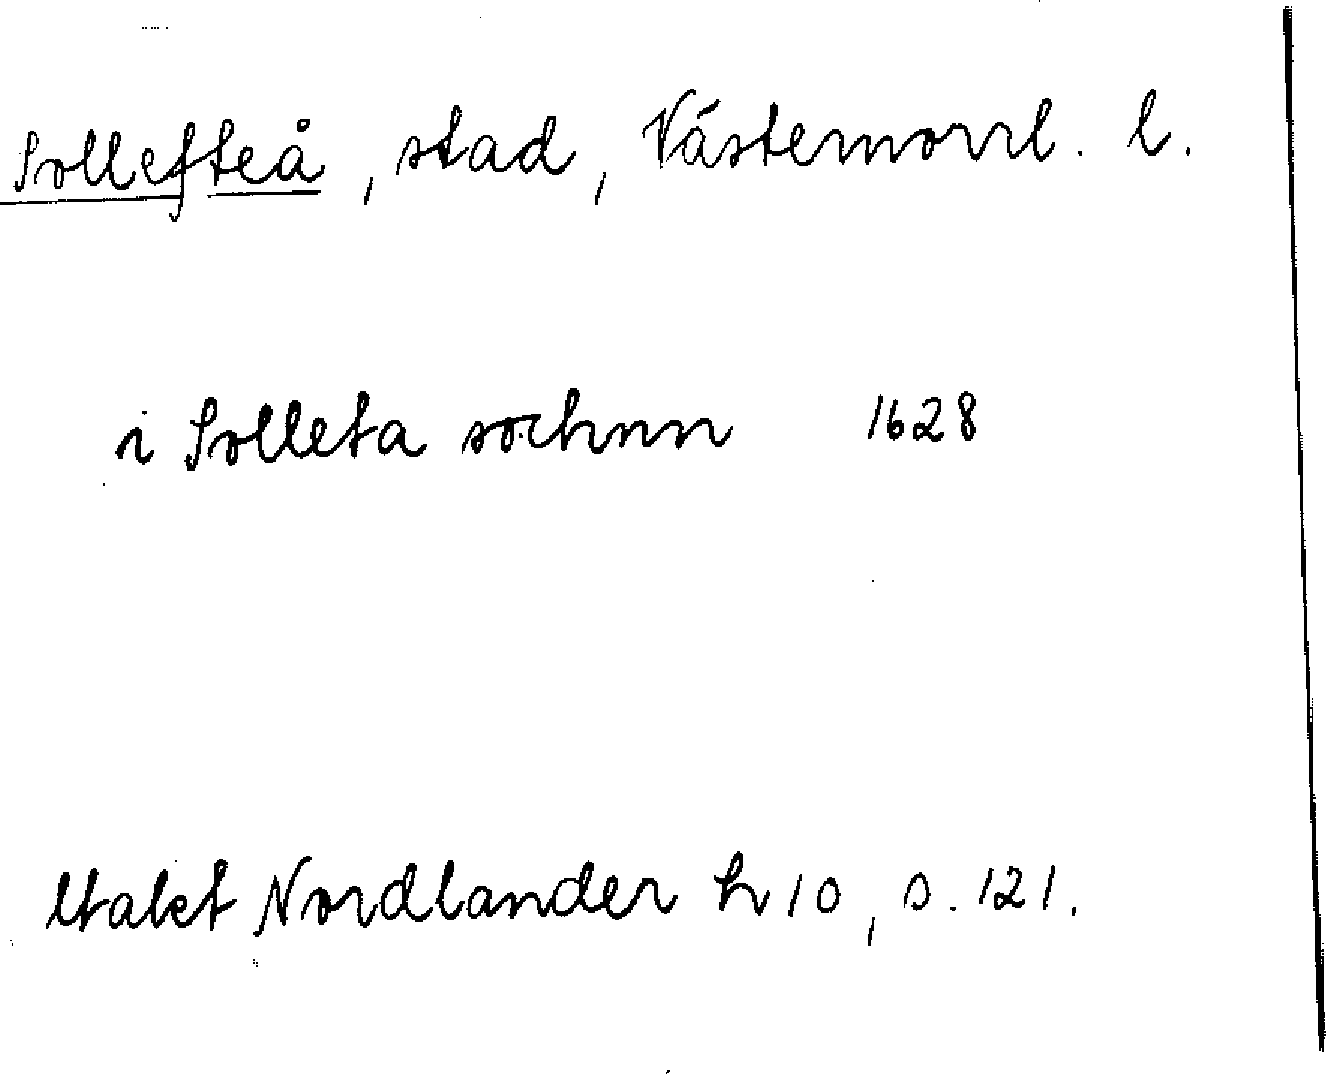 Sollefteå, stad, Västernorrl. l.
i Solleta sochnn 1628
Utalet Nordlander h 10, s. 121.